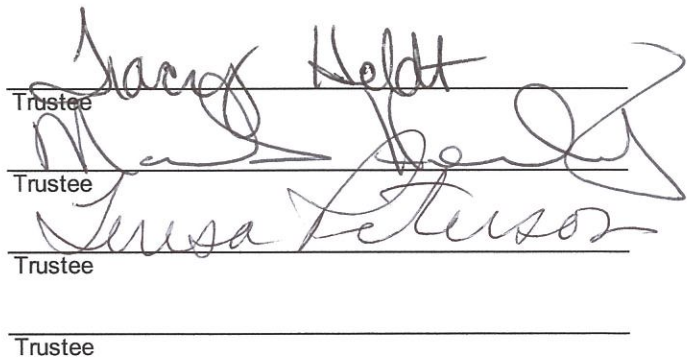 Tracy Holdt
Trustee
Trustee
Teresa Peterson
Trustee
Trustee